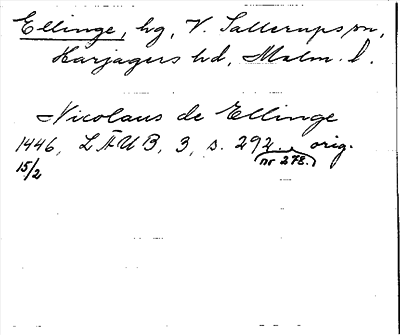 Ellinge, hg, V. Sallerups sn,
Harjagers hd, Malm. l.
Nicolaus de Ellinge
1446, LÄUB, 3, s. 292. orig.
15/2 (nr 278.)